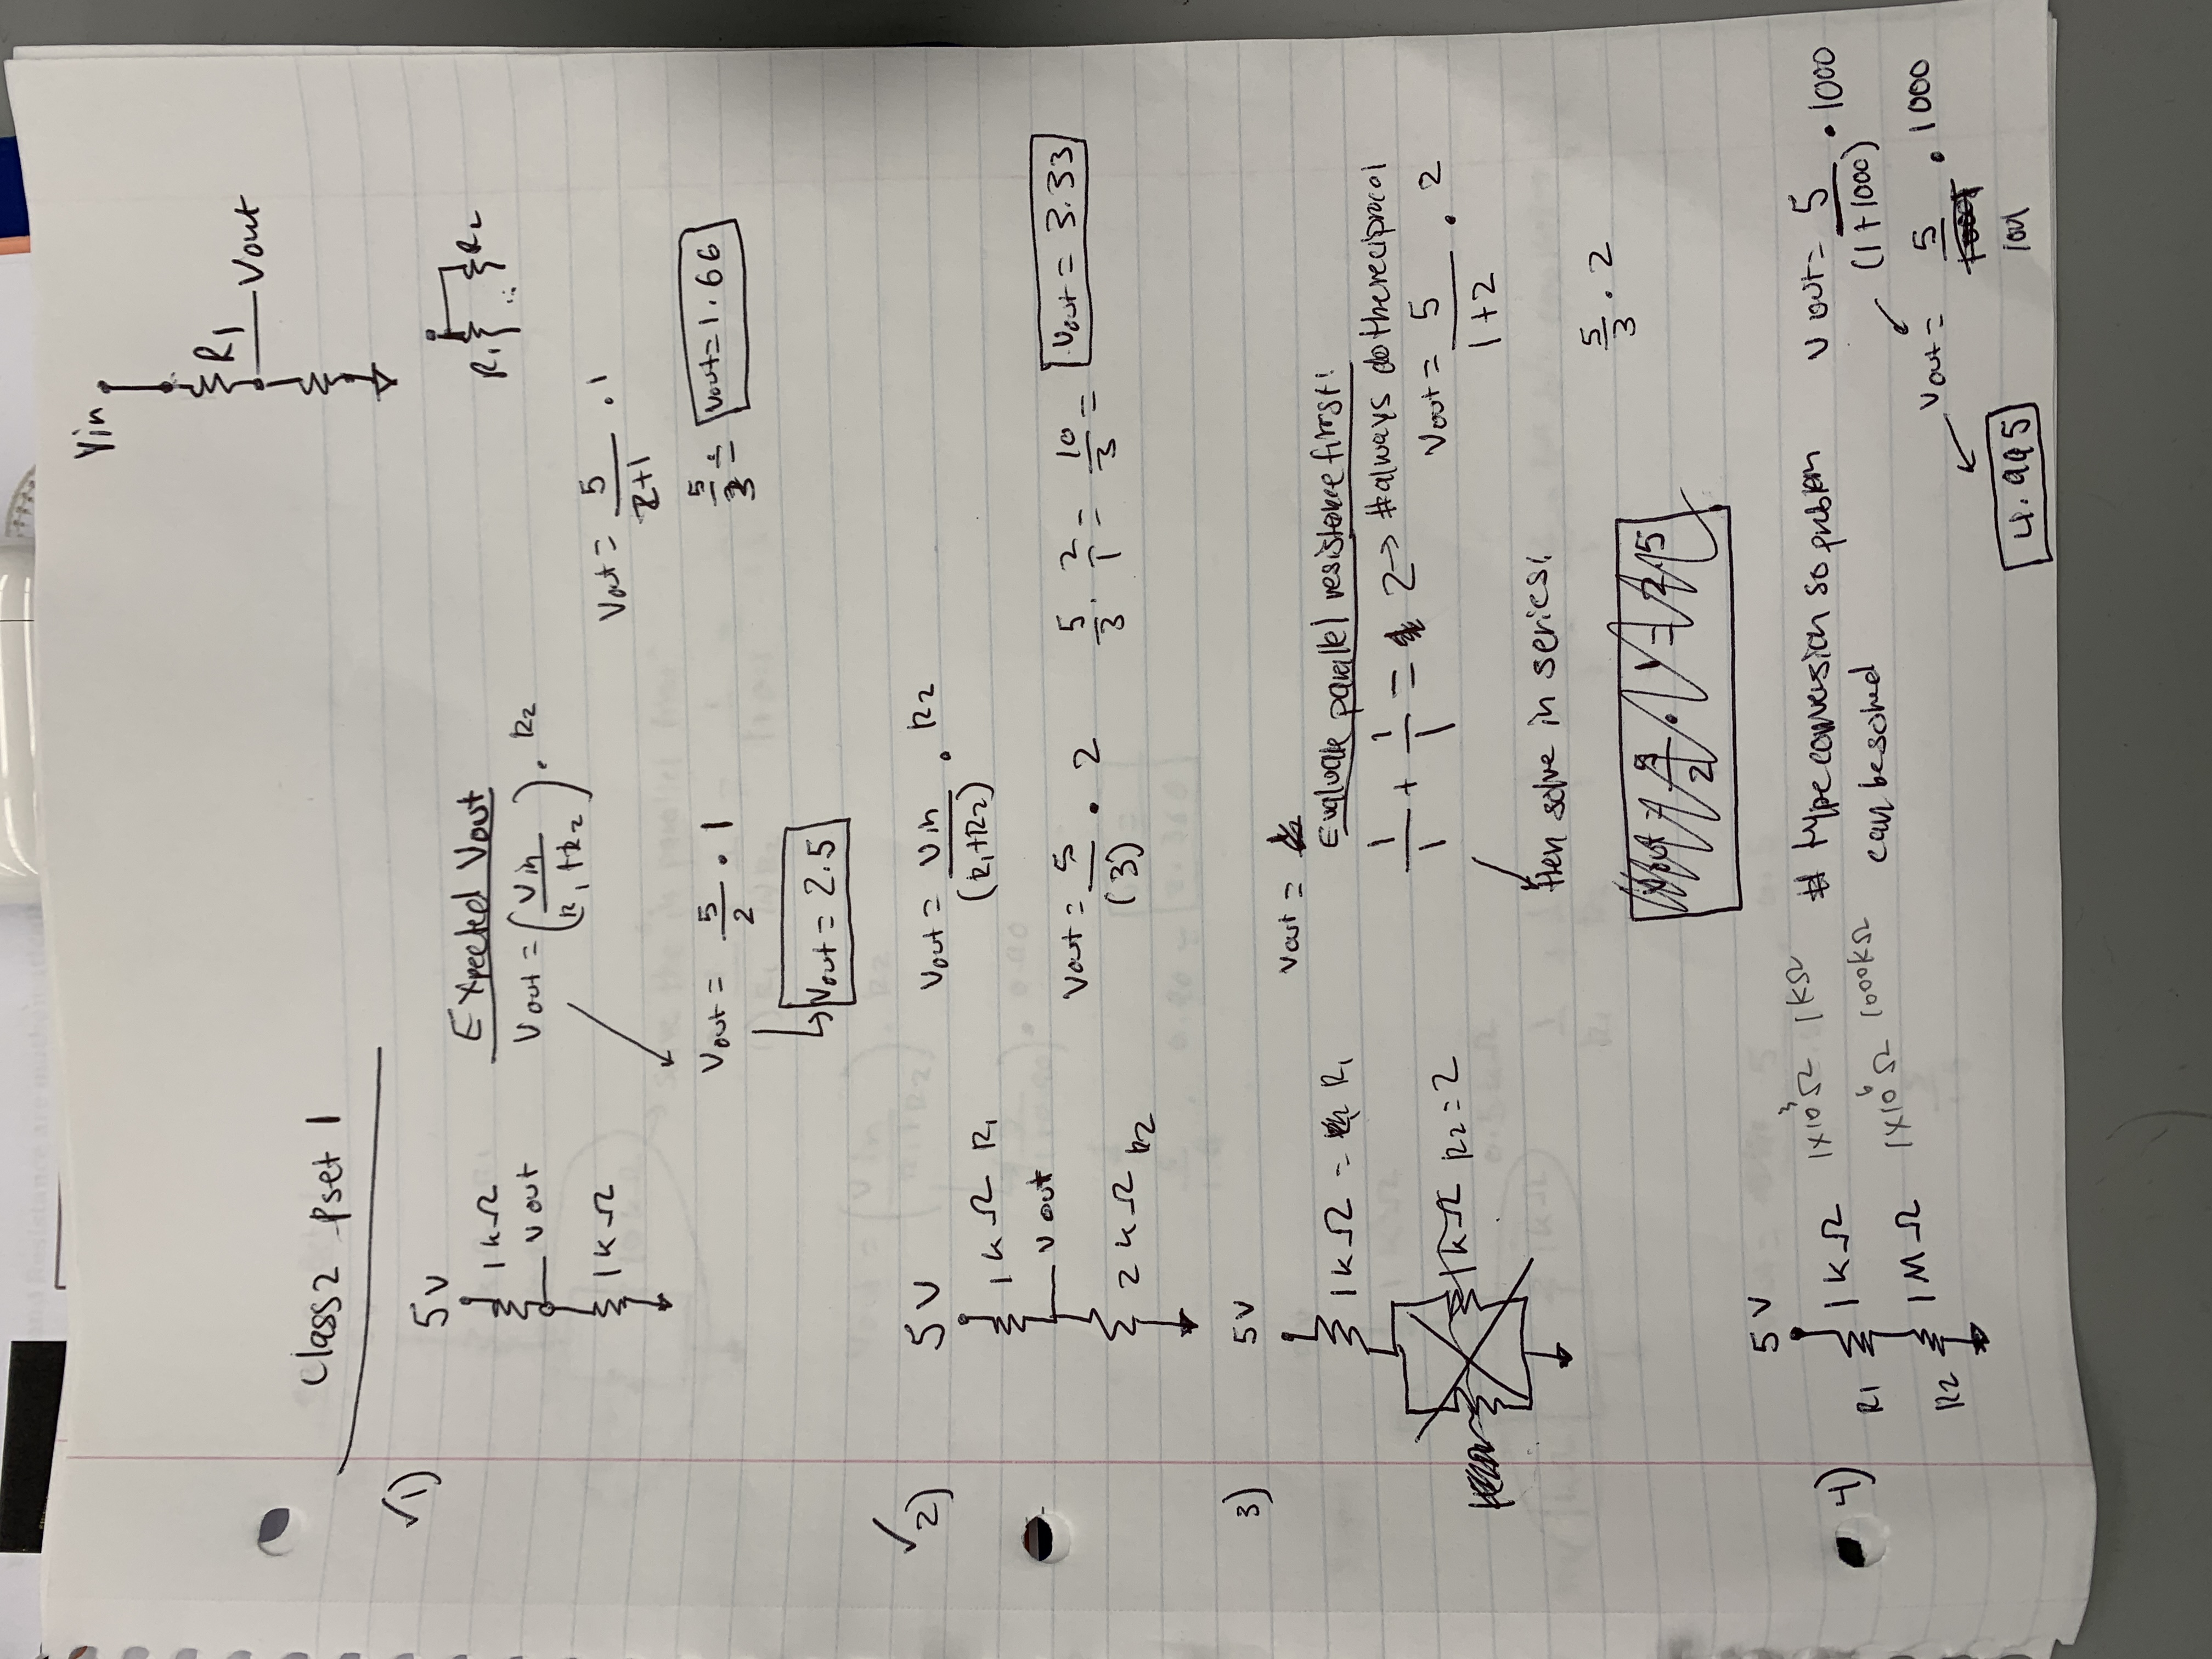 and Resistance are mathematical
Vin
R1
Vout
Class2 Pset 1
R1 R2
✓1)
5V
1kΩ
Vout
1kΩ
Expected Vout
Vout = (Vin / R1+R2) · R2
Vout = 5/2 · 1
Vout = 2.5
Vout = 5/2+1 · 1
5/3 = Vout = 1.66
✓2)
5V
1kΩ R1
Vout
2kΩ R2
Vout = Vin/(R1+R2) · R2
Vout = 5/(3) · 2 5/3 · 2/1 = 10/3 = Vout = 3.33
3)
5V
1kΩ = R1
1kΩ R2 = 2
Vout =
Evaluate parallel resistance first!
1/1 + 1/1 = 2 → #always do the reciprocal
Vout = 5/1+2 · 2
then solve in series!
5/3 · 2
Vout = 5/2 · 1 = 2.5
4)
5V
R1 1kΩ 1x10³Ω 1kΩ
R2 1MΩ 1x10⁶Ω 1000kΩ
# type conversion so problem
can be solved
Vout = 5/(1+1000) · 1000
Vout = 5/1001 · 1000
4.995